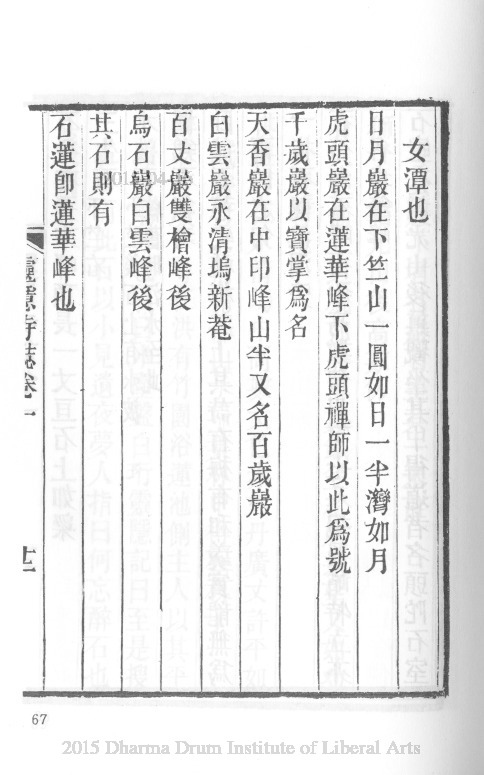 女潭也
日月巖在下竺山一圓如日一半灣如月
虎頭巖在蓮華峰下虎頭禪師以此爲號
千歲巖以寶掌爲名
天香巖在中印峰山半又名百歲巖
白雲巖永清塢新菴
百丈巖雙檜峰後
烏石巖白雲峰後
其石則有
石蓮卽蓮華峰也
靈隱寺誌卷一
十二
67
2015 Dharma Drum Institute of Liberal Arts